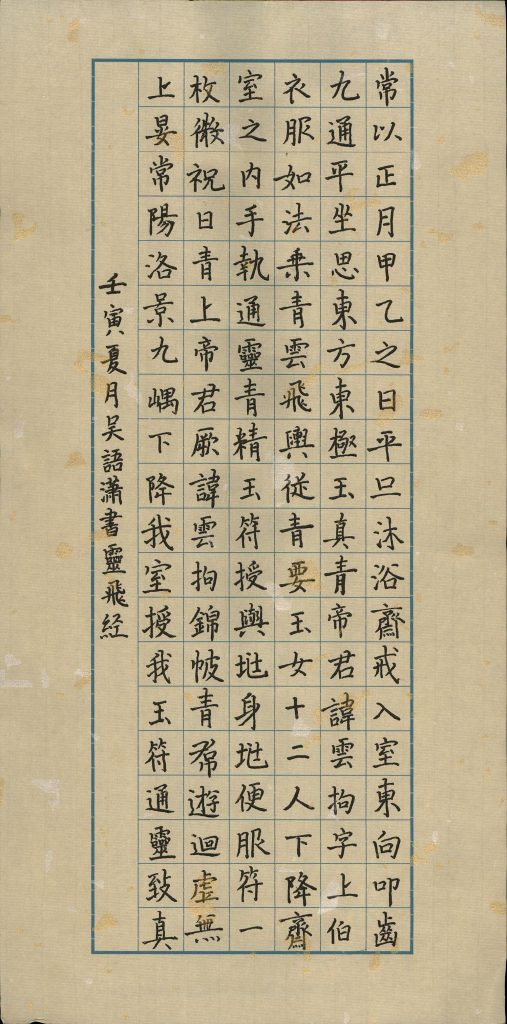 常以正月甲乙之日平旦沐浴齋戒入室東向叩齒
九通平坐思東方東極玉真青帝君諱雲拘字上伯
衣服如法乘青雲飛輿從青要玉女十二人下降齋
室之内手執通靈青精玉符授與兆身兆便服符一
枚微祝曰青上帝君厥諱雲拘錦帔青帬遊迴虛無
上晏常陽洛景九嵎下降我室授我玉符通靈致真
壬寅夏月吴語瀟書靈飛经